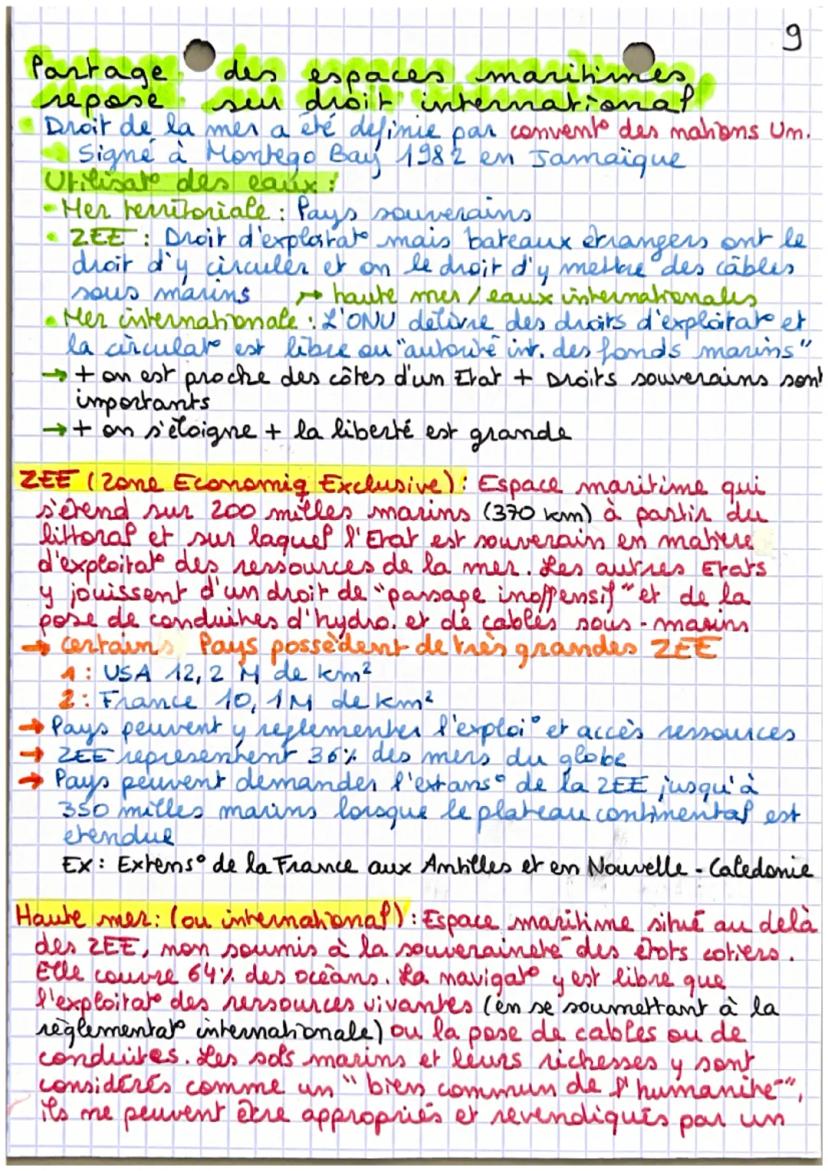 9
Partage des espaces maritimes
repose sur droit international
• Droit de la mer a été definie par convent° des nations Un.
Signé à Montego Bay 1982 en Jamaïque
Utilisat° des eaux :
• Mer territoriale : Pays souverains
• ZEE : Droit d'exploitat° mais bateaux étrangers ont le
droit d'y circuler et on le droit d'y mettre des câbles
sous marins → haute mer / eaux internationales
• Mer internationale : L'ONU délivre des droits d'exploitat° et
la circulat° est libre ou "autorité int. des fonds marins"
→ + on est proche des côtes d'un Etat + Droits souverains sont
importants
→ + on s'éloigne + la liberté est grande
ZEE (Zone Economiq Exclusive) : Espace maritime qui
s'étend sur 200 milles marins (370 km) à partir du
littoral et sur laquel l'Etat est souverain en matière
d'exploitat° des ressources de la mer. Les autres Etats
y jouissent d'un droit de "passage inoffensif" et de la
pose de conduites d'hydro. et de cables sous-marins
→ certains Pays possèdent de très grandes ZEE
1 : USA 12,2 M de km²
2 : France 10,1M de km²
→ Pays peuvent y reglementer l'exploi° et accès ressources
→ ZEE representent 36% des mers du globe
→ Pays peuvent demander l'extans° de la ZEE jusqu'à
350 milles marins lorsque le plateau continental est
étendue
Ex : Extens° de la France aux Antilles et en Nouvelle-Caledonie
Haute mer : (ou international) : Espace maritime situé au delà
des ZEE, non soumis à la souveraineté des états cotiers.
Elle couvre 64% des océans. La navigat° y est libre que
l'exploitat° des ressources vivantes (en se soumettant à la
règlementat° internationale) ou la pose de cables ou de
conduites. Les sols marins et leurs richesses y sont
considérés comme un "bien commun de l'humanité",
ils ne peuvent être appropriés et revendiqués par un